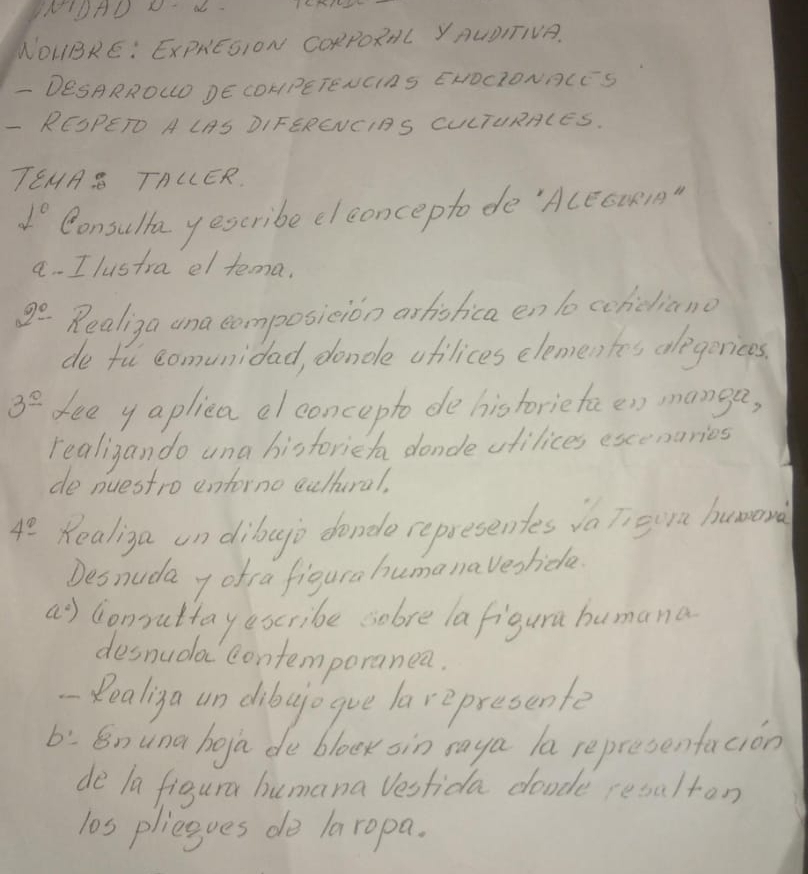 UNIDAD N. 2.
NOMBRE: EXPRESION CORPORAL Y AUDITIVA.
- DESARROLLO DE COMPETENCIAS EMOCIONALES
- RESPETO A LAS DIFERENCIAS CULTURALES.
TEMA: TALLER.
1º Consulta y escribe el concepto de "ALEGORIA"
a- Ilustra el tema.
2º- Realiza una composición artistica en lo cotidiano
de tú comunidad, donde utilices elementos alegoricos.
3º Lee y aplica el concepto de historieta en manga,
realizando una historieta donde utilices escenarios
de nuestro entorno cultural.
4º Realiza un dibujo donde representes la Figura humana
Desnuda y otra figura humana vestida.
aº) Consulta y escribe sobre la figura humana
desnuda contemporanea.
- Realiza un dibujo que la represente
b:- En una hoja de block sin raya la representación
de la figura humana Vestida donde resalten
los pliegues de la ropa.